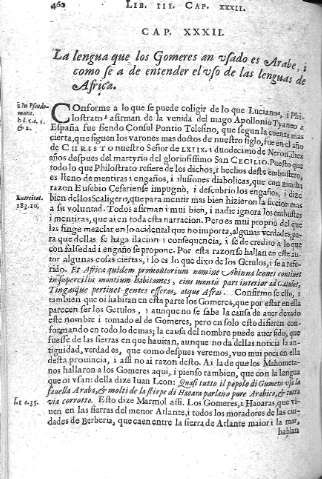 462 LIB. III. CAP. XXXII.
CAP. XXXII.
La lengua que los Gomeres an usado es Arabe, i
como se a de entender el uso de las lenguas de
Africa.
COnforme a lo que se puede coligir de lo que Luciano, i Phi-
lostrato afirman de la venida del mago Apollonio Tyaneo a
España siendo Consul Pontio Telesino, que segun la cuenta mas
cierta, que siguen los varones mas doctos de nuestro siglo, fue en el año
de CHRISTO nuestro Señor de LXIX. i duodecimo de Neron,
años despues del martyrio del gloriosissimo SAN CECILIO. Puesto que
todo lo que Philostrato refiere de los dichos, i hechos deste embustero,
es lleno de mentiras, i engaños, i illusiones diabolicas, que con
razon Eusebio Cesariense impugnò, i descubriò los engaños, i dize
bien dellos Scaligero, que para mentir mas bien hizieron la ficcion
a su voluntad. Todos afirman i mui bien, i nadie ignora los embustes
i mentiras, que ai en cada narracion. Pero es mui proprio del que
las finge mezclar en lo accidental que no importa, algunas verdades, pa-
ra que dellas se haga ilacion i consequencia, i se dè credito a lo que
con falsedad i engaño se propone. Por esta razon se hallan en este au-
tor algunas cosas ciertas, i lo es lo que dixo de los Getulos, i
Et Africa quidem
montium habitantes, eius montis pars interior ad
Tingisque pertinet gentes efferas, atque afras. Confirmase ello, i
tambien que oi habitan en esta parte los Gomeres, que por estar en ella
parecen ser los Getulos, i aunque no se sabe la causa de aver dexado
este nombre i tomado el de Gomeres, pero en solo esto difieren con-
formando en todo lo demas; la causa del nombre puede aver sido, que
fuesse de las sierras en que havitan, aunque no da dellas noticia la an-
tiguedad, verdad es, que como despues veremos, uvo mui poca en ella
desta provincia, i assi no ai razon desto. Ai la de que los Mahometa-
nos hallaron a los Gomeres aqui, i pienso tambien, que con la lengua
que oi usan della dize Iuan Leon: Quasi tutto il popolo di Gumeto usa la
favella Araba, & molti de la stirpe di Haoara parlano pure Arabico, & tutta
via corrotto. Esto dize Marmol assi. Los Gomeres, i Haoaras, que vi-
ven en las sierras del menor Atlante, i todos los moradores de las ciu-
dades de Berberia, que caen entre la sierra de Atlante maior i la mar,
hablan